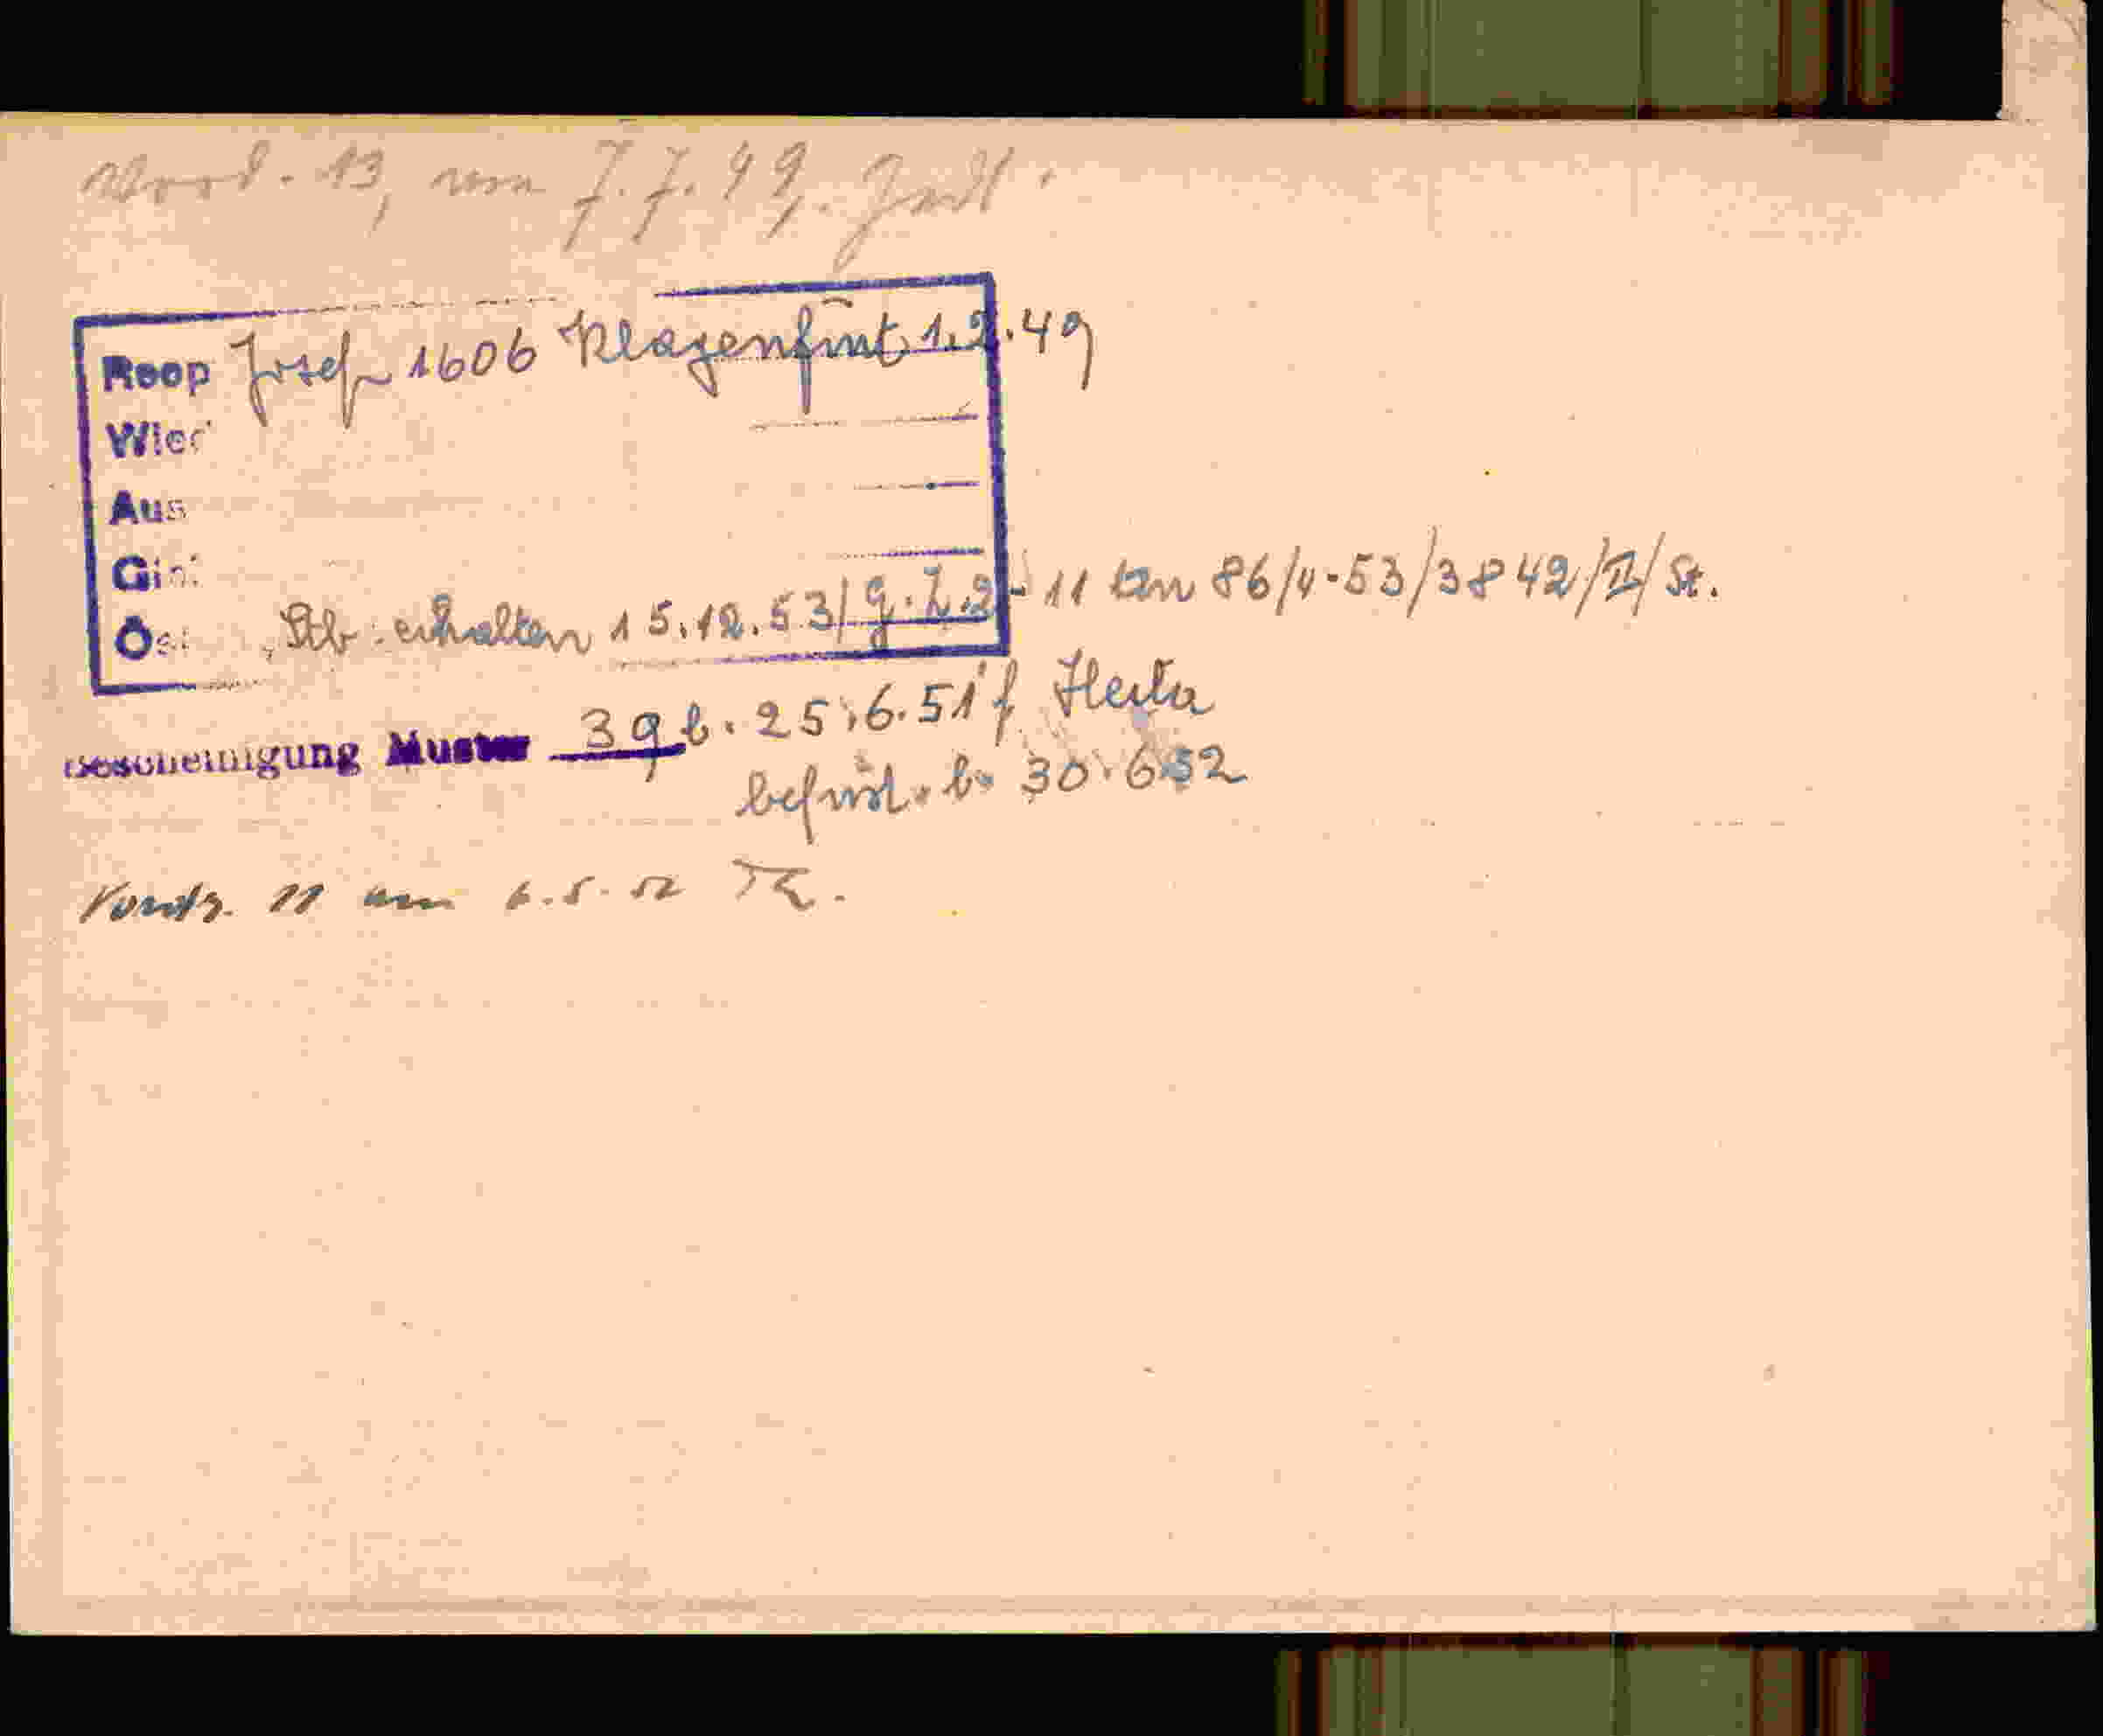 13, vom 7.7.49.
Reop Josef 1606 Klagenfurt 1.2.49
Wied
Aus
Ös
Stb. erhalten 15.12.53/ g.Z.2-11 tzn 86/4-53/3842/II/St.
Bescheinigung Muster 39 b. 25.6.51 f Herta
befrist. b. 30.6.52
Vordr. 11 am 6.5.52